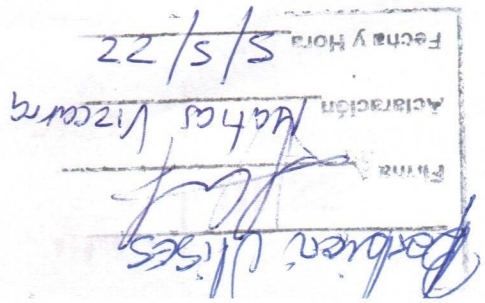 Barbieri Ulises
Firma
Aclaración Matias Vizcarra
Fecha y Hora 5/5/22